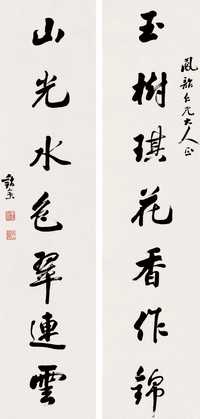 仁兄大人正
玉樹琪花香作錦
山光水色翠連雲